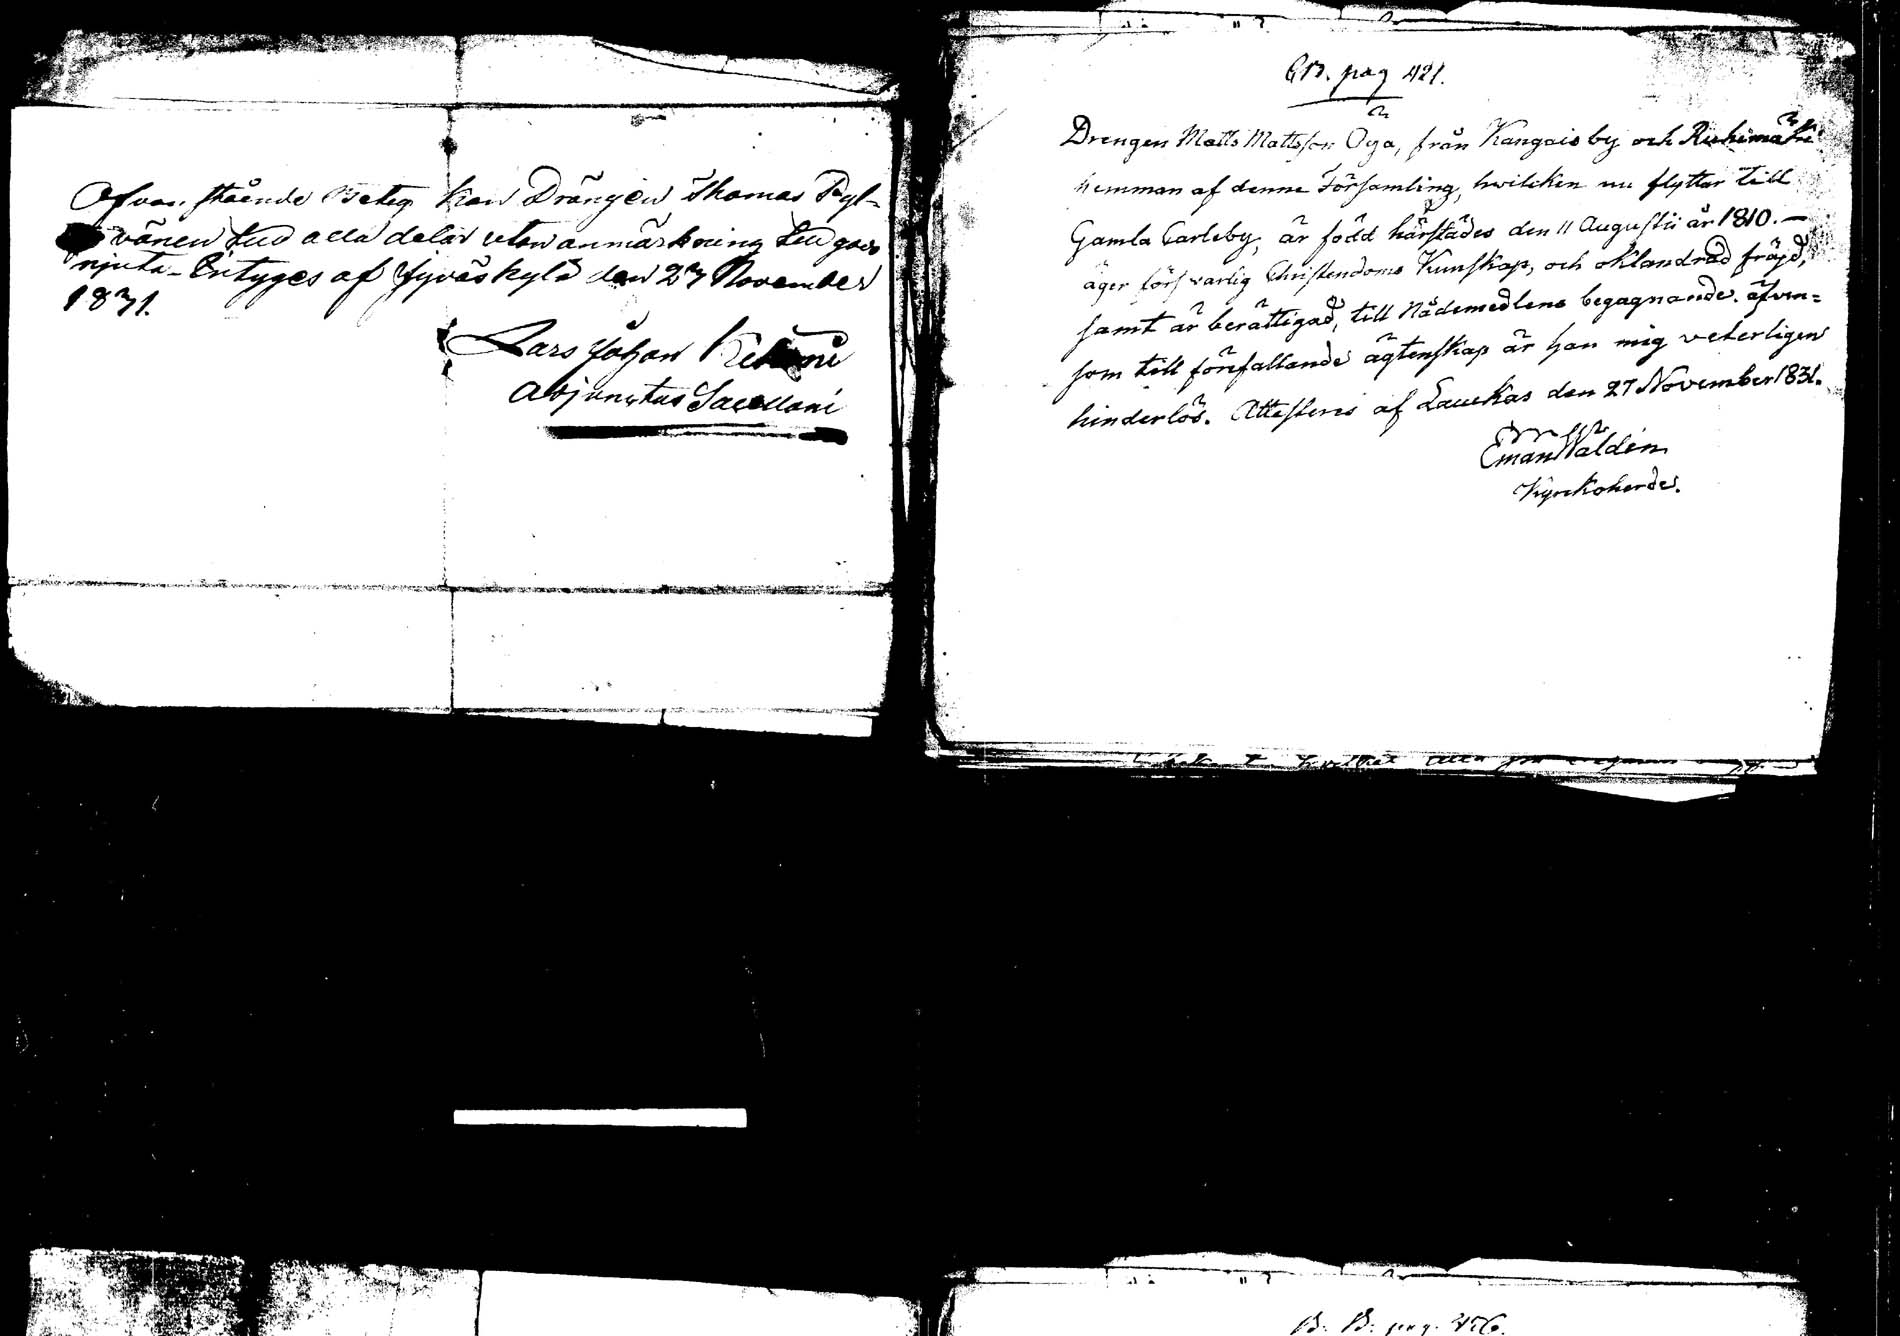 Ofvan stående Betyg kan Drängen Thomas Pyl-
vänen till alla delar utan anmärkning till godo
njuta. Intygas af Jyväskylä den 27 November
1831.
Lars Johan
Adjunctus Sacellani
CB. pag 421.
Drengen Matts Mattsson Oga, från Kangais by och Ruhimäki
hemman af denne Församling, hwilcken nu flyttar till
Gamla Carleby, är född härstädes den 11 Augustii år 1810. —
äger försvarlig Christendoms Kunskap, och oklandrad fräjd,
samt är berättigad, till Nådemedlens begagnande. äfven=
som till förefallande ägtenskap är han mig veterligen
hinderlös. Attesteras af Laukas den 27 November 1831.
Eman Waldén
Kyrckoherde.
B. B. pag. 456.